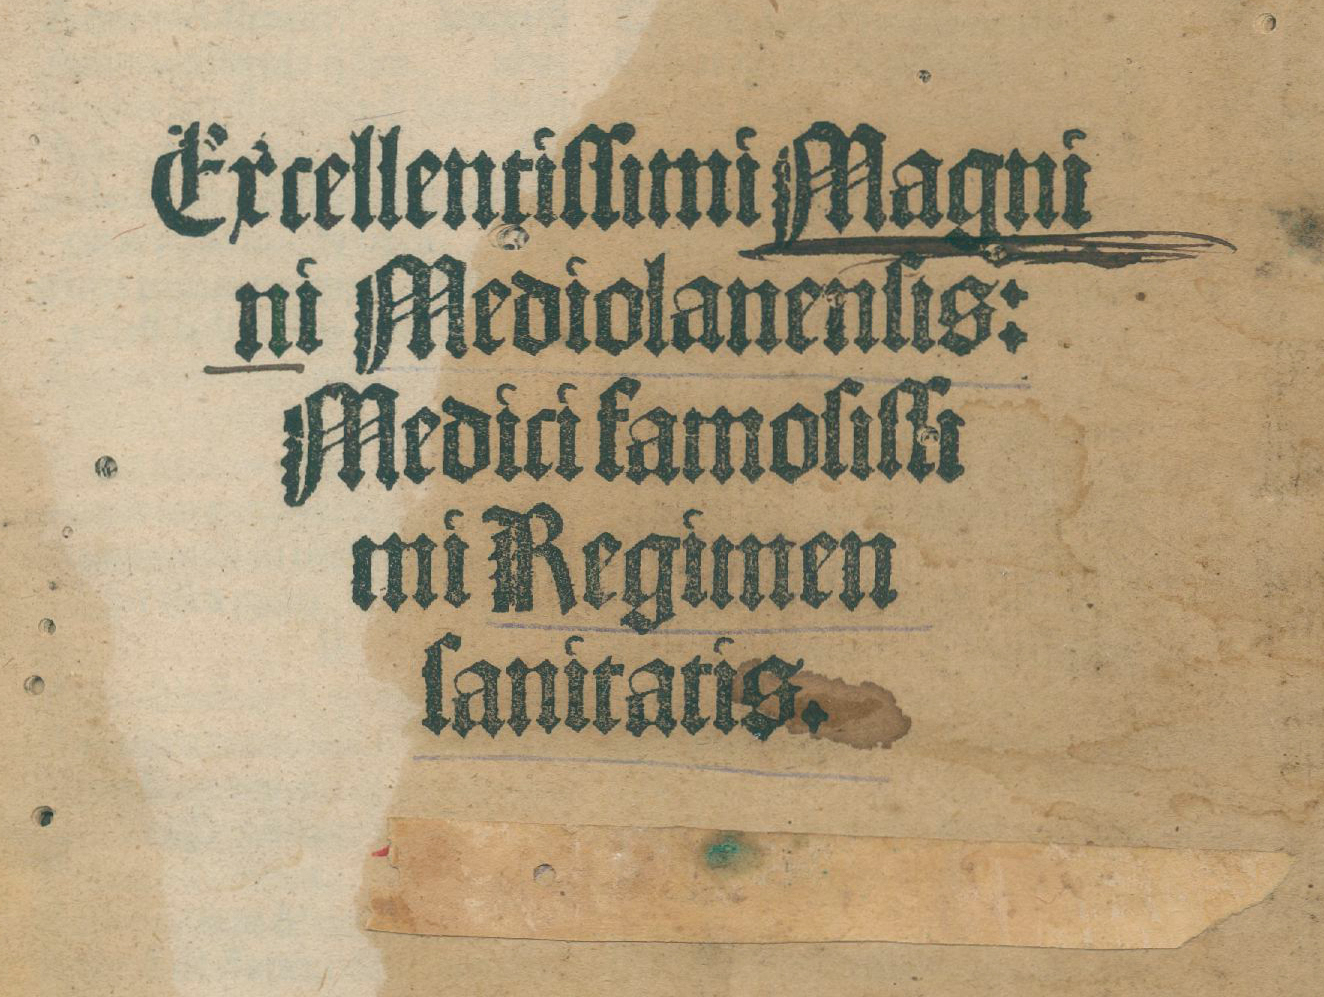 Excellentiſſimi Magni
ni Mediolanenſis:
Medici famoſiſſi
mi Regimen
ſanitatis.